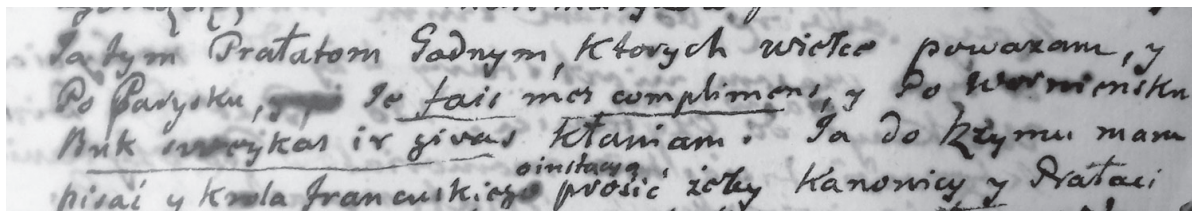 Ja tym Prałatom Godnym, ktorych wielce powazam, y
Po Parysku, Je fais mes complimens, y Po warmiensku
Buk sweykas ir givas kłaniam. Ja do Rzymu mam
o instacyą
pisać y Krola francuskiego prosić żeby Kanonicy y Prałaci